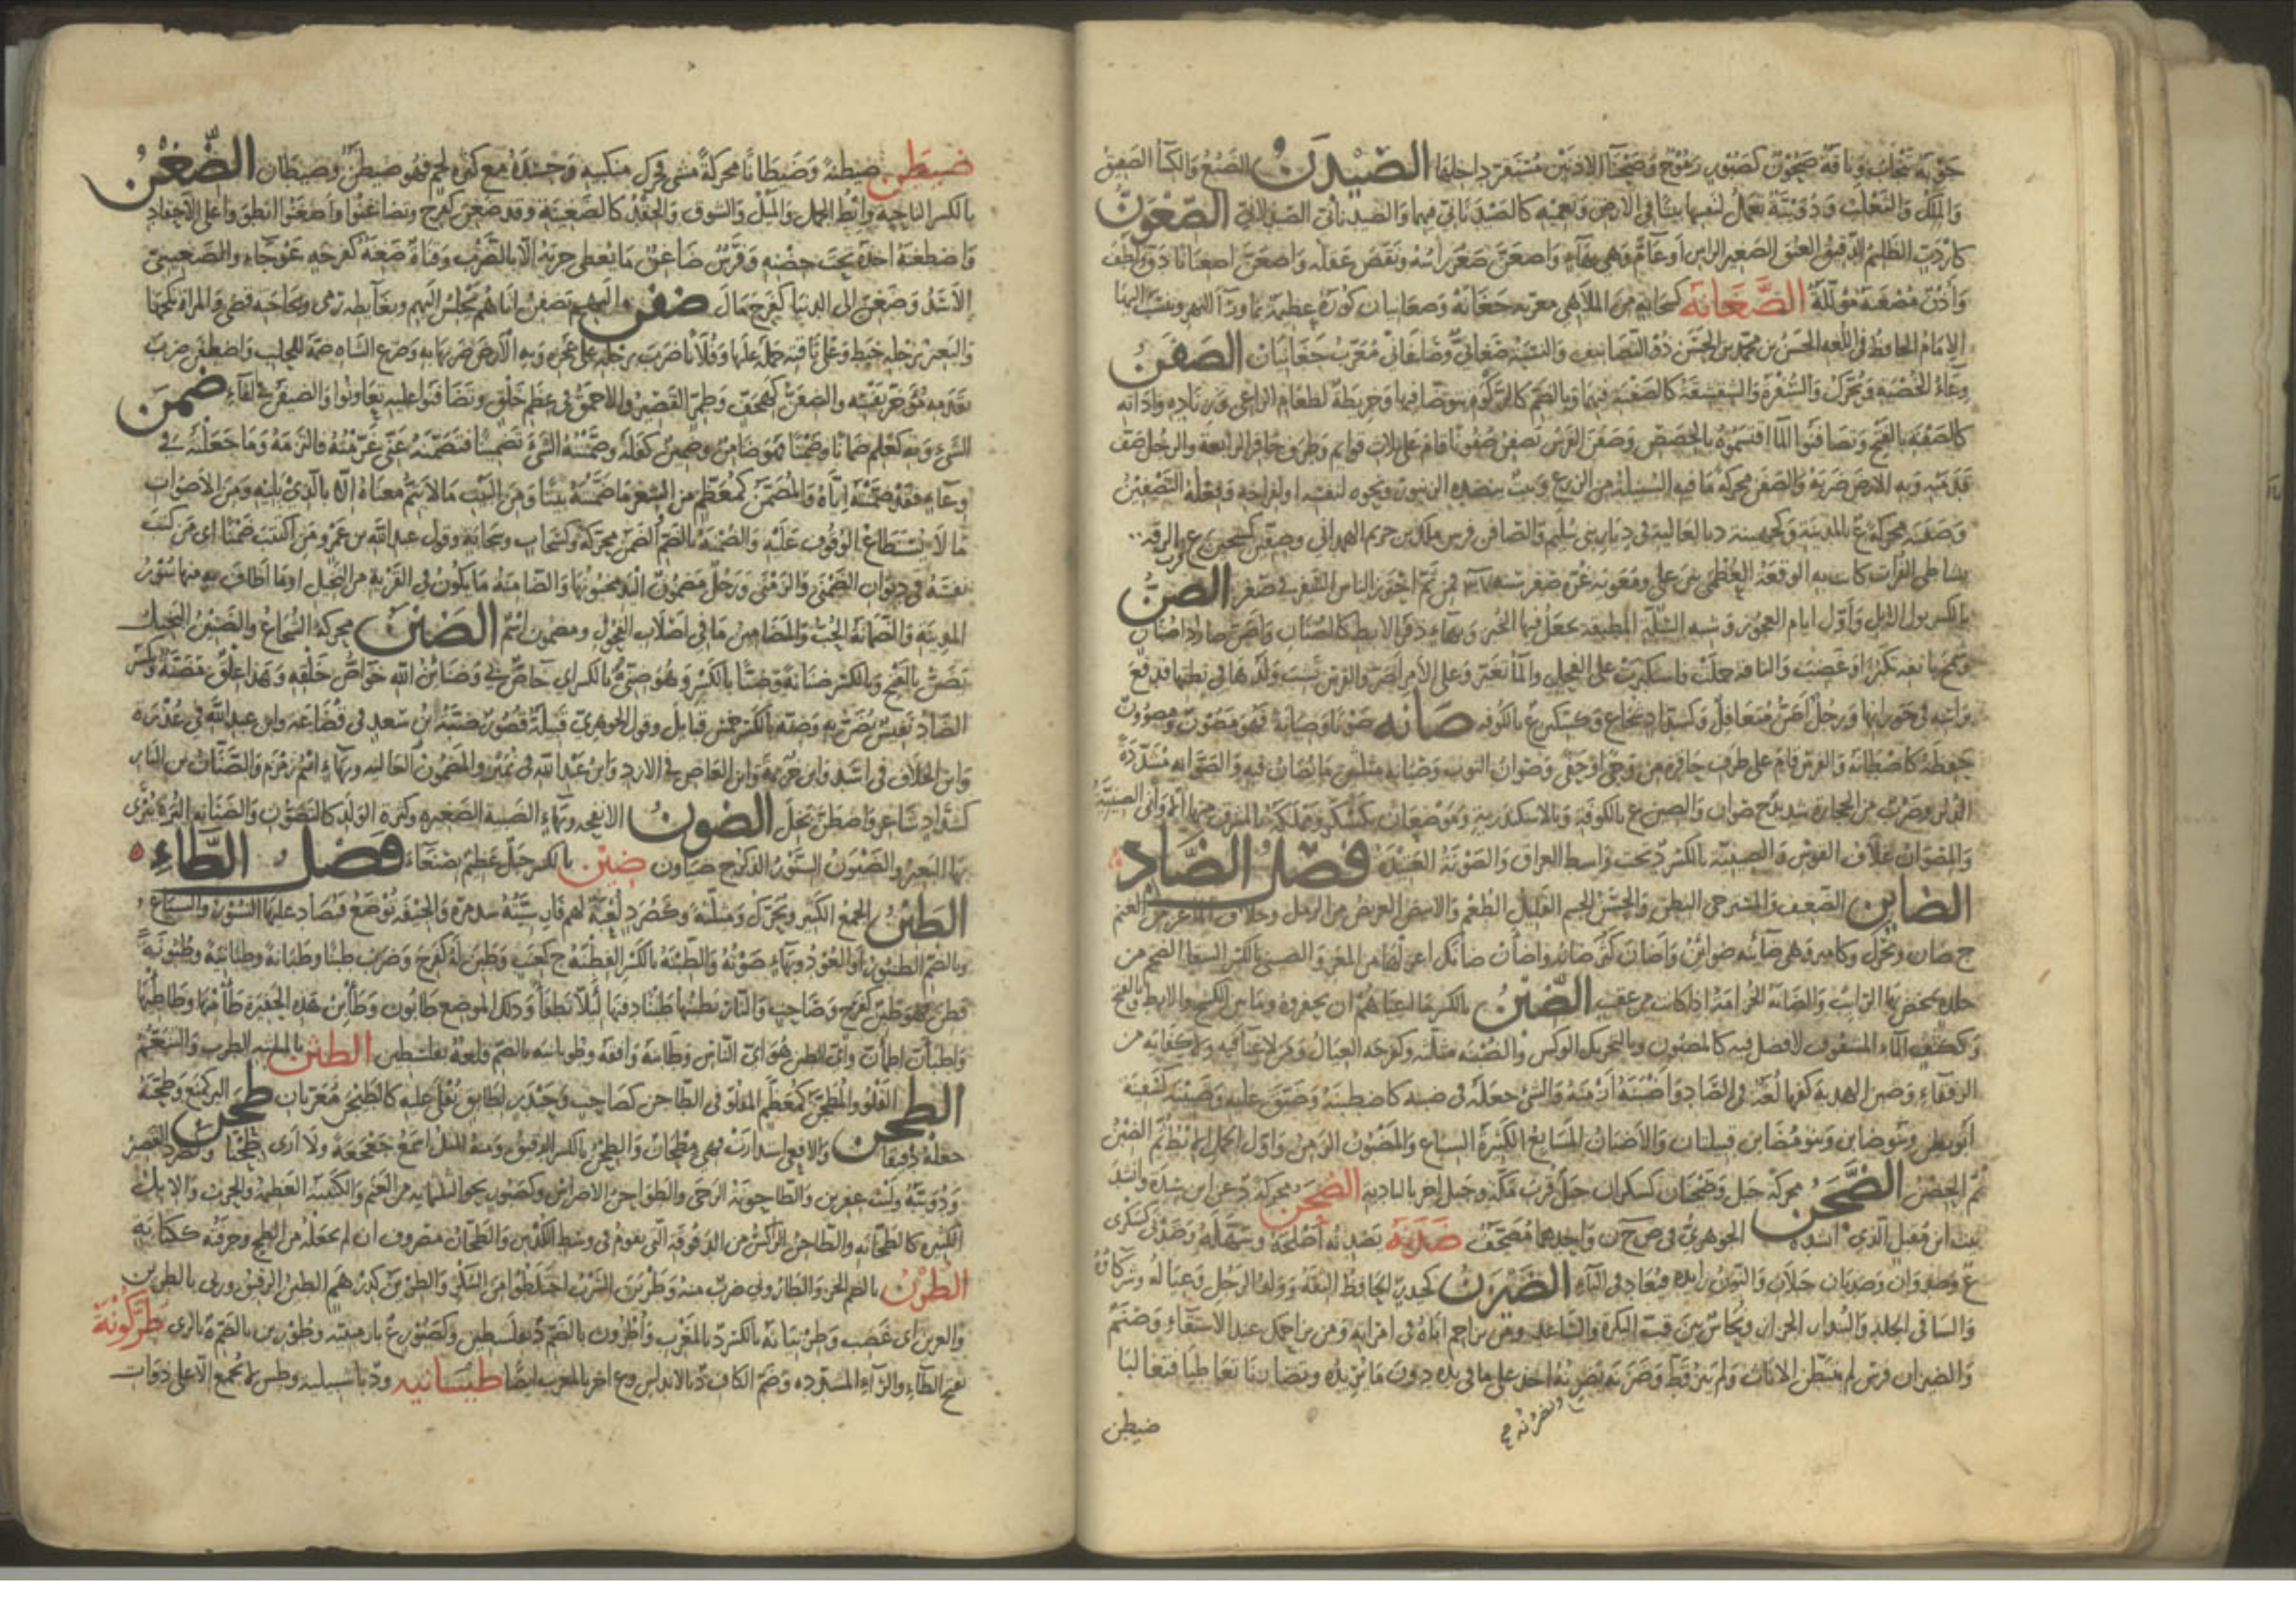 الصَّيْدَنُ الضبع والكساء الصفيق
والملك والثعلب ودويبة تعمل لنفسها بيتا في الارض وتعميه كالصيدناني فيهما والصيدناني الصيدلاني الصِّغْوَنُّ
كاردب الظليم الدقيق العنق الصغير الراس او عام وهي بهاء واصعن صغر راسه ونقص عقله واصعن اصعنانا دق ولطف
واذن مصعنة مؤللة الصَّغَانَة كسحابة من الملاهي معربة جغانة وصغانيان كورة عظيمة بما وراء النهر وينسب اليها
الامام الحافظ في اللغة الحسن بن محمد بن الحسن ذو التصانيف والنسبة صغاني وصاغاني معرب جغانيان الصَّفَنُ
وعاء الخصية ويحرك والسفرة والشقشقة كالصفنة فيهما وبالضم كالركوة يتوضا فيها وخريطة لطعام الراعي وزناده واداته
كالصفنة بالفتح وتصافنوا الماء اقتسموه بالحصص وصفن الفرس يصفن صفونا قام على ثلاث قوايم وطرف حافر الرابعة والرجل صف
قدميه وبه الارض ضربه والصفن محركة ما فيه السنبلة من الزرع وبيت ينضده الزنبور ونحوه لنفسه او لفراخه وفعله التصفين
وصفنة محركة ع بالمدينة وكجهينة د بالعالية في ديار بني سليم والصافن فرس مالك بن خريم الهمداني وصفين كسجين ع قرب الرقة
بشاطئ الفرات كانت به الوقعة العظمى بين علي ومعوية غرة صفر سنة ٣٧ فمن ثم احترز الناس السفر في صفر الصِّنُّ
بالكسر بول الوبر واول ايام العجوز وشبه السلة المطبقة يجعل فيها الخبز وبهاء ذفر الابط كالصنان واصن صار ذا صنان
وشمخ بانفه تكبرا او غضب والناقة حملت فاستكبرت على الفحل والماء تغير وعلى الامر اصر والفرس نشب ولدها في بطنها فدفع
صَانَه صونا وصيانة فهو مصون ومصوون
حفظه كاصطانه والفرس قام على طرف حافره من وجى او حفى وصوان الثوب وصيانه مثلثين ما يصان فيه والصوانة مشددة
الدبر وضرب من الحجارة شديد ج صوان والصين ع بالكوفة وبالاسكندرية وموضعان بكسكر ومملكة بالمشرق منها الاواني الصينية
والمصوان غلاف القوس والصينية بالكسر د تحت واسط العراق والصونة العتيدة فَصْلُ الضَّاد
الضاين الضعيف والمسترخي البطن والحسن الجسم القليل الطعم والابيض العريض من الرمل وخلاف الماعز من الغنم
ج ضان ويحرك وكامير وهي ضائنة ج ضوائن واضان كثر ضانه واضان ضانك اعزلها من المعز والضيني بالكسر السقاء الضخم من
جلده يمخض به الرائب والضانة الخزامة اذا كانت من عقب الضِّبْنُ بالكسر ما اعياهم ان يحفروه وما بين الكشح والابط وبالفتح
وككتف الماء المشفوف لا فضل فيه كالمضبون وبالتحريك الوكس والضبنة مثلثة وكفرحة العيال ومن لا غناء فيه ولا كفاية من
الرفقاء وضبن الهدية كفها لغة في الصاد واضبنه ازمنه والشئ جعله في ضبنه كاضطبنه وضيق عليه وضبينة كسفينة
ابو بطن وبنو ضابن وبنو مضابن قبيلتان والاضبان المسابع الكثيرة السباع والمضبون الزمن واول الحمل الابط ثم الضبن
ثم الحضن الضَّجَنُ محركة جبل وضجنان كسكران جبل قرب مكة وجبل اخر بالبادية الضَّحَنُ محركة د عن ابن سيده وانشد
بيت ابن مقبل الذي انشده الجوهري في ض ج ن واحدهما مصحف ضَدَنَهُ يضدنه اصلحه وسهله وضدنى كسكرى
ع وضدوان وضديان جبلان والنون زايدة فيعاد في الياء الضَّيْزَنُ كحيدر الحافظ الثقة وولد الرجل وعياله وشركاؤه
والساقي الجلد والبندار الخزان ونحاس بين قب البكرة والساعد ومن يزاحم اباه في امراته ومن يزاحمك عند الاستقاء وصنم
والضيزان فرس لم يتبطن الاناث ولم ينز قط وضزنه يضزنه اخذ على ما في يده دون ما يريده وتضازنا تعاطيا فتغالبا
ضيطن
ضَيْطَن ضيطنة وضيطانا محركة مشى فحرك منكبيه وجسده مع كثرة لحم فهو ضيطن وضيطان الضِّغْنُ
بالكسر الناحية وابط الجمل والميل والشوق والحقد كالضغينة وقد ضغن كفرح وتضاغنوا واضغنوا انطووا على الاحقاد
واضطغنه اخذه تحت حضنه وفرس ضاغن ما يعطي جريه الا بالضرب وقناة ضغنة كفرحة عوجاء والضغيني
الاسد وضغن الى الدنيا كفرح مال ضَفَن اليهم يضفن اتاهم يجلس اليهم وبغايطه رمى وبحاجته قضى والمراة نكحها
والبعير برجله خبط وعلى ناقته حمله عليها وفلانا ضرب برجله على عجزه وبه الارض ضربها به وضرع الشاة ضمه للحلب واضطفن ضرب
بقدمه مؤخر نفسه والضفن كهجف وطمر القصير والاحمق في عظم خلق وتضافنوا عليه تعاونوا والضيفن في الفاء ضَمِن
الشئ وبه كعلم ضمانا وضمنا فهو ضامن وضمين كفله وضمنته الشئ تضمينا فتضمنه عني غرمته فالتزمه وما جعلته في
وعاء فقد ضمنته اياه والمضمن كمعظم من الشعر ما ضمنته بيتا ومن البيت ما لا يتم معناه الا بالذي يليه ومن الاصوات
ما لا يستطاع الوقوف عليه والضمنة بالضم الضمن محركة وكسحاب وسحابة وقول عبد الله بن عمرو من اكتتب ضمنا اي من كتب
نفسه في ديوان الضمنى والزمنى ورجل مضمون اليد مخبونها والضامنة ما يكون في القرية من النخيل او ما اطاف به منها سور
المدينة والضمانة الحب والمضامين ما في اصلاب الفحول ومضمون اسم الضَّنِينُ محركة الشجاع والضنين البخيل
يضن بالفتح وبالكسر ضنانة وضنا بالكسر وهو ضني بالكسر اي خاص بي وضنائن الله خواص خلقه وهذا علق مضنة وتكسر
الضاد نفيس يضن به وضنة بالكسر خمس قبايل وقول الجوهري قبيلة قصور ضنة بن سعد في قضاعة وابن عبد الله في عذرة
وابن الحلاف في اسد وابن خزيمة وابن العاص في الازد وابن عبد الله في نمير والمضنون الغالية وبهاء اسم زمزم والضنان من الناس
كشداد شاعر واضطن بخل الضَّوْنُ الانفحة وبهاء الصبية الصغيرة وكثرة الولد كالتضون والضانة البرة يبرى
بها البعير والضيون السنور الذكر ج ضياون ضِين بالكسر جبل عظيم بصنعاء فَصْل الطَّاء
الطَّبْنُ الجمع الكثير ويحرك ومثلثة وكصرد لعبة لهم فارسيته سدرة والجيفة توضع فيصاد عليها النسور والسباع
وبالضم الطنبور او العود وبهاء صوته والطبنة بالكسر الفطنة ج كعنب وطبن له كفرح وضرب طبنا وطبانة وطبانية وطبونة
فطن فهو طبن كفرح وصاحب والنار يطبنها طبنا دفنها لئلا تطفا وذلك الموضع طابون وطابن هذه الحفيرة طامنها وطاطئها
واطبان اطمان واي الطبن هو اي الناس وطابنه وافقه وطوبانية بالضم قلعة بفلسطين الطَّثْن بالمثلثة الطرب والتنعم
الطَّجْنُ القلو والمطجن كمعظم المقلو في الطاجن كصاحب وحيدر لطابق يقلى عليه كالطيجن معربان طَحَن البر كمنع وطحنه
جعله دقيقا والافعى استدارت فهي مطحان والطحن بالكسر الدقيق ومنه المثل اسمع جعجعة ولا ارى طحنا وكصرد القصير
ودويبة وليث عفرين والطاحونة الرحى والطواحن الاضراس وكصبور نحو الثلثماية من الغنم والكتيبة العظيمة والحرب والابل
الكثيرة كالطحانة والطاحن الراكس من الدقوقة التي تقوم في وسط الكدس والطحان مصروف ان لم تجعله من الطح وحرفته ككتابة
الطُّرْنُ بالضم الخز والطاروني ضرب منه وطرين الشرب اختلطوا من السكر والطرين كدرهم الطين الرقيق ورمى بالطرين
والغرين اي غضب وطريانة بالكسر د بالمغرب واطرون بالضم د بفلسطين وكصبور ع بارمينية وطورين بالضم ة بالري طَرَّكُونَة
بفتح الطاء والراء المشددة وضم الكاف د بالاندلس وع اخر بالمغرب ايضا طيسانيه ود باشبيلية وطس لا تجمع الا على ذوات